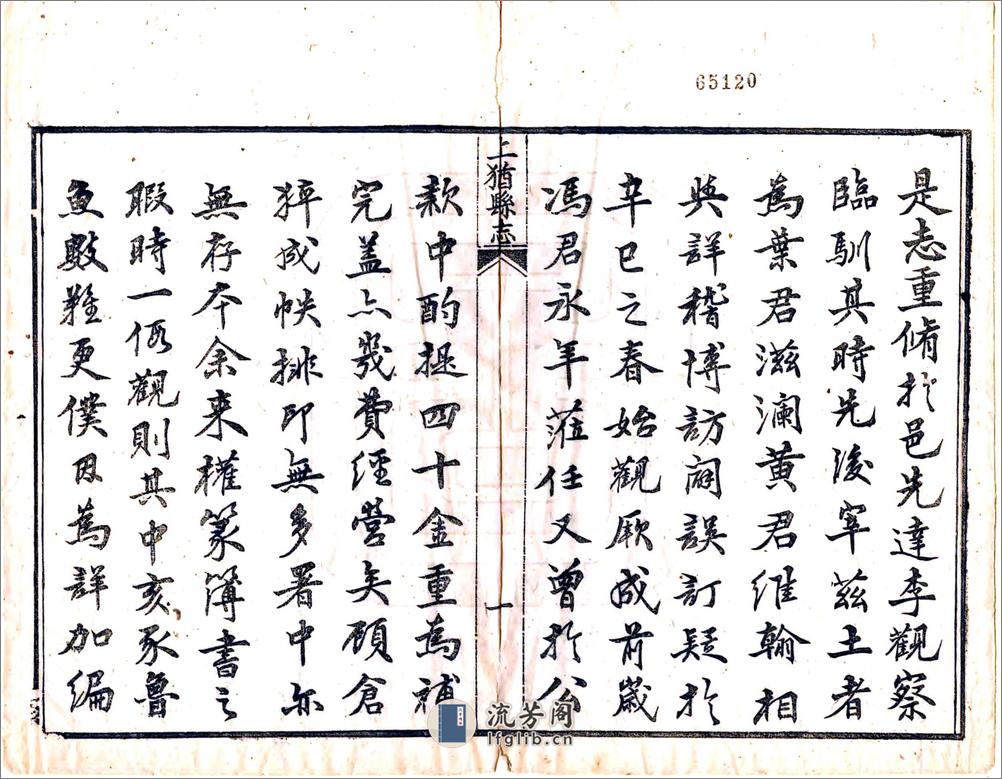 65120
是志重脩於邑先達李觀察
臨馴其時先後宰茲土者
為葉君滋瀾黄君維翰相
與詳稽博訪闢誤訂疑於
辛巳之春始觀厥成前歲
馮君永年蒞任又曾於公
上猶縣志
一
款中酌提四十金重為補
完蓋亦幾費經營矣顧倉
猝成帙排印無多署中亦
無存本余来權篆簿書之
暇時一侭觀則其中亥豕魯
魚數難更僕因為詳加編
流芳阁
lfglib.cn